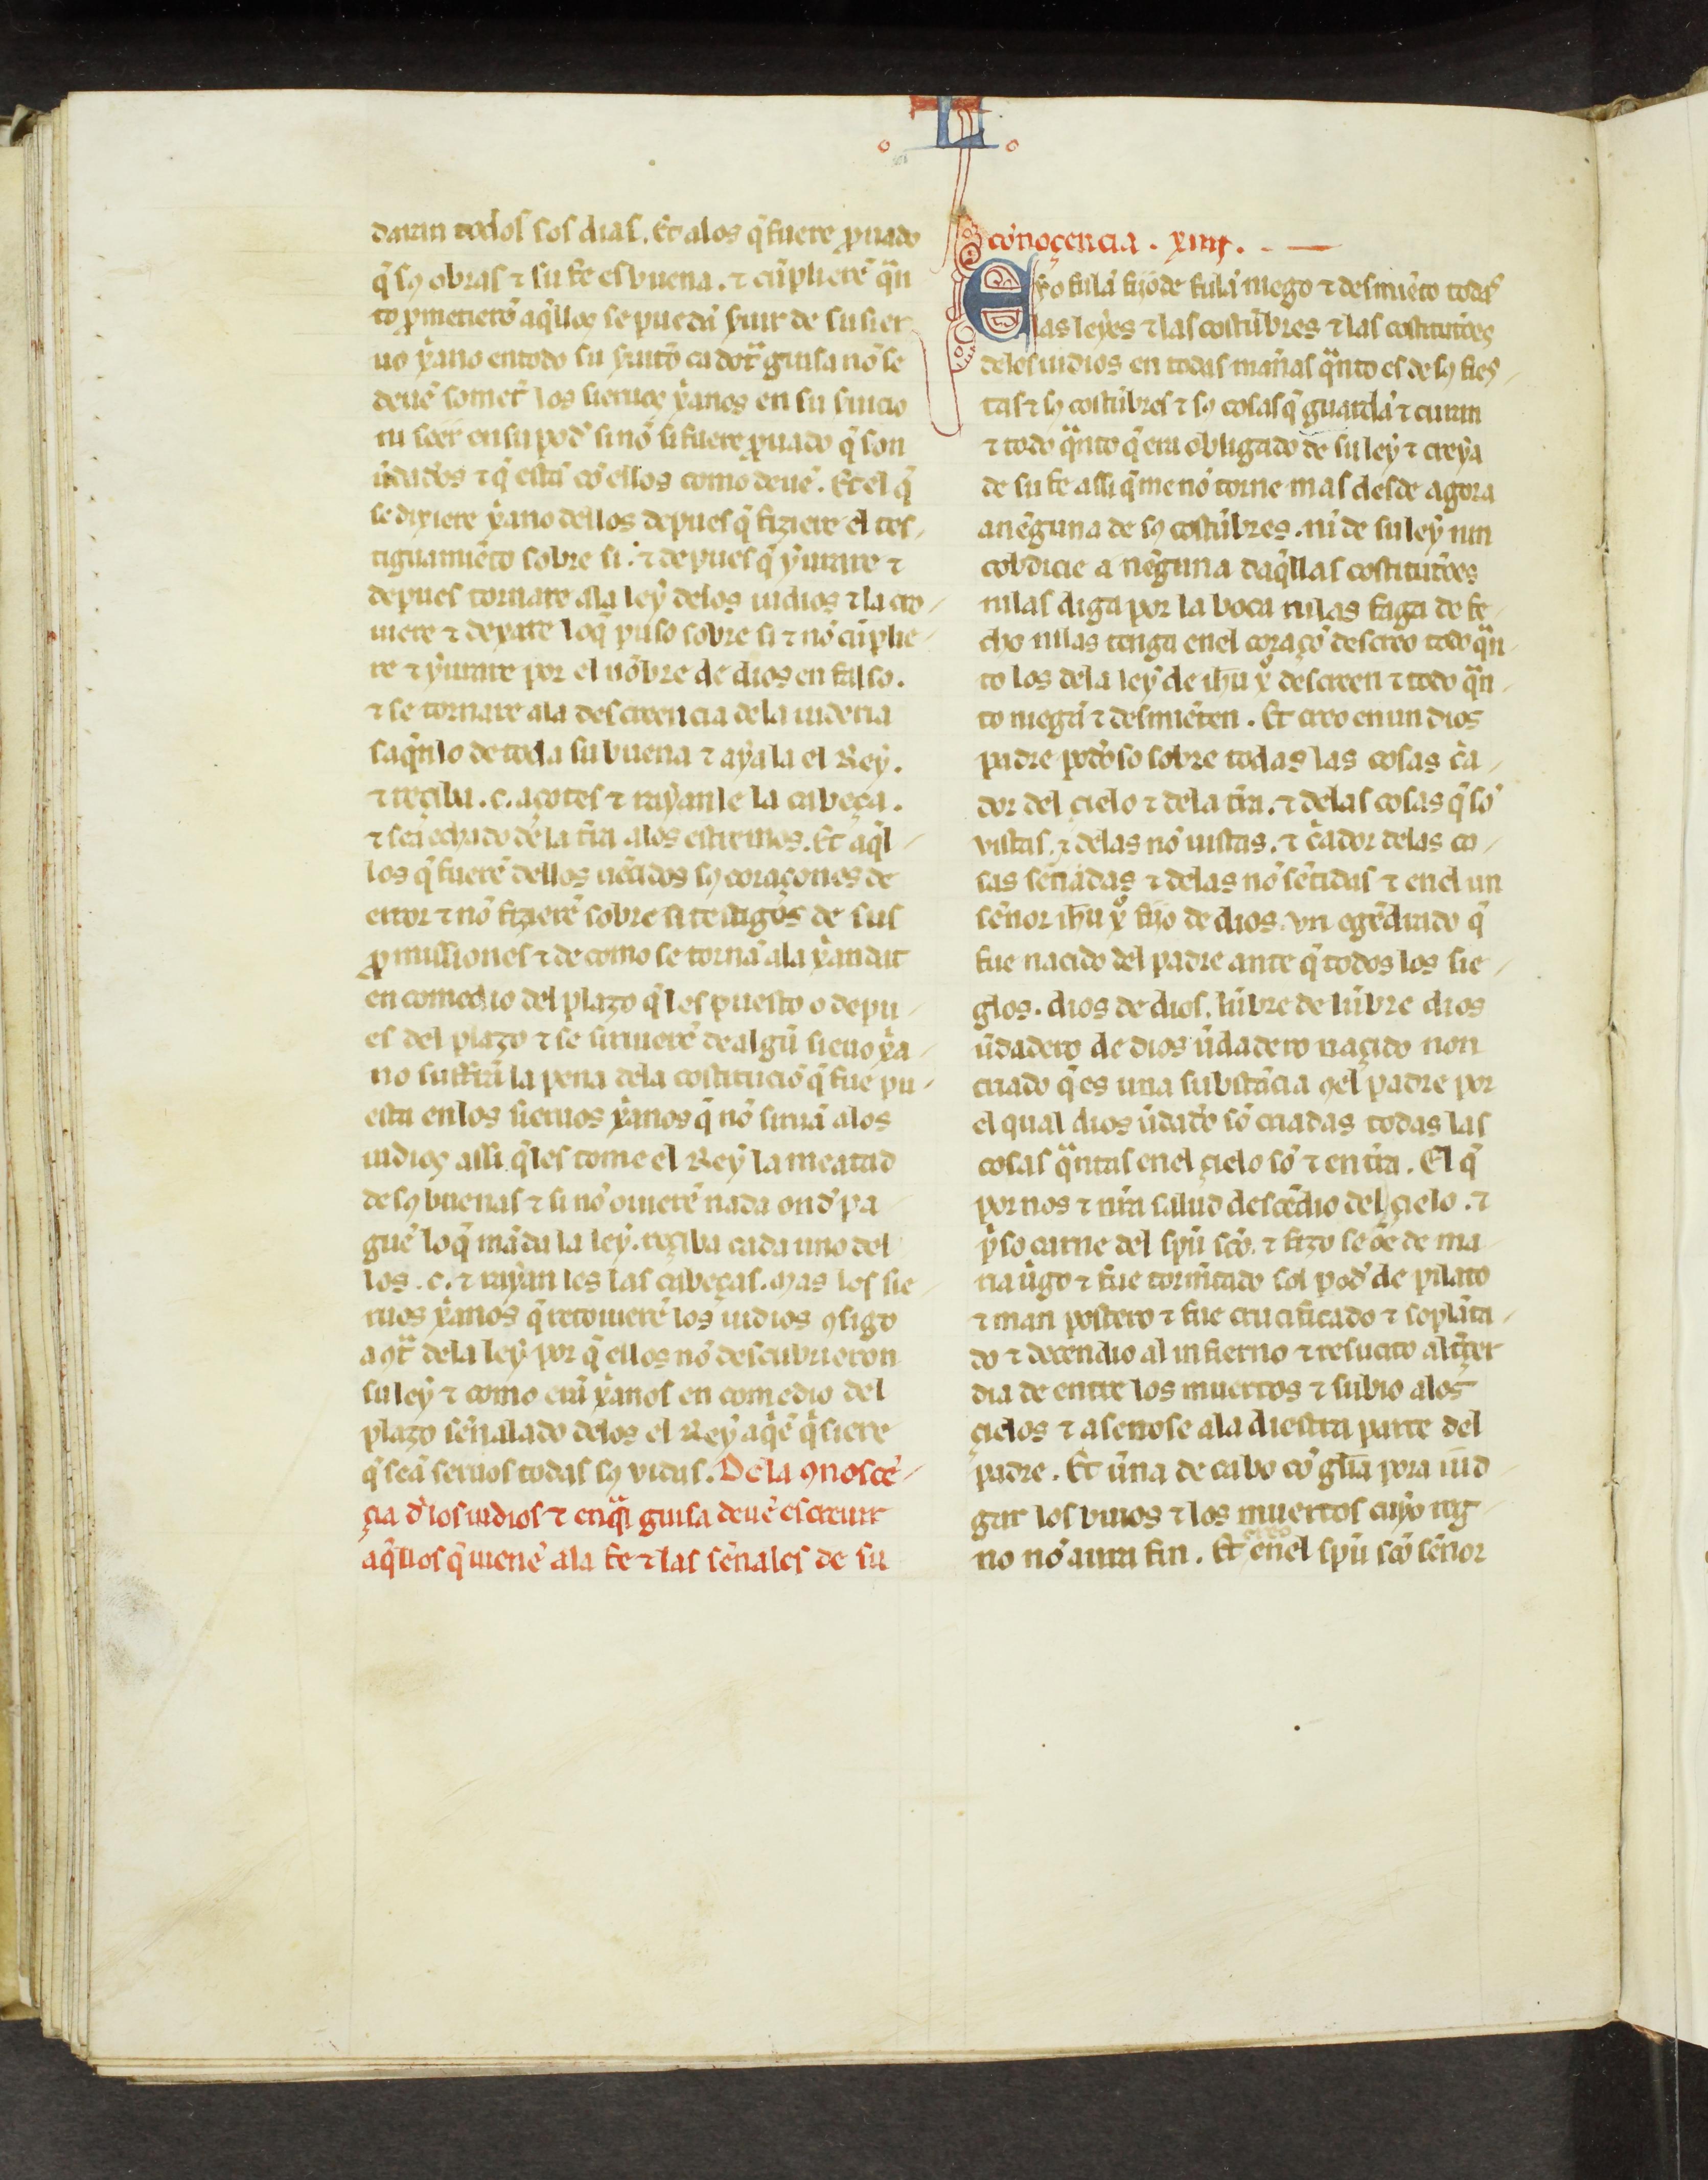 L
daran todos sos dias. Et alos q̃ fuere ꝓuado
q̃ sꝯ obras ⁊ su fe es buena. ⁊ cũplierẽ q̃n
to ꝓmetierõ aq̃llos se puedã s̃uir de su sier
uo xp̃ano en todo su s̃uiçio ca dotͣ guisa nõ se
deuẽ someter̃ los sieruos xp̃anos en su s̃uicio
ni seer en su pod̃ si nõ si fuere ꝓuado q̃ son
ũdados ⁊ q̃ estã cõ ellos como deuẽ. Et el q̃
se dixiere xp̃ano dellos depues q̃ fiziere el tes
tiguamiẽto sobre si. ⁊ depues q̃ yurare ⁊
depues tornare ala ley delos iudios ⁊ la cro
uiere ⁊ dexare loq̃ puso sobre si ⁊ nõ cũplie
re ⁊ yurare por el nõbre de dios en falso.
⁊ se tornare ala descreencia de la iuderia
saq̃nlo de toda su buena ⁊ ayala el Rey.
⁊ reçiba .c. açotes ⁊ rayanle la cabeça.
⁊ sea echado de la tr̃ra alos estremos. Et aq̃l
los q̃ fuerẽ dellos uẽcidos sꝯ coraçones de
error ⁊ nõ fizierẽ sobre si testigos de sus
ꝓmissiones ⁊ de como se tornã ala xp̃andat
en comedio del plazo q̃ les puesto o depu
es del plazo ⁊ se siruierẽ de algũ sieruo xp̃a
no suffrã la pena dela costituciõ q̃ fue pu
esta en los sieruos xp̃anos q̃ nõ siruã alos
iudios assi q̃ les tome el Rey la meatad
de sꝯ buenas ⁊ si nõ ouierẽ nada ond̃ pa
guẽ loq̃ mãda la ley. reçiba cada uno del
los .c. ⁊ rayan les las cabeças. Mas los sie
ruos xp̃anos q̃ retouierẽ los iudios ꝯsigo
a ꝯtͣ dela ley por q̃ ellos nõ descubrieron
su ley ⁊ como erã xp̃anos en comedio del
plazo sẽnalado delos el Rey aq̃ẽ q̃siere
q̃ seã seruos todas sꝯ vidas. Dela ꝯnoscẽ
çia d̃ los iudios ⁊ enq̃l guisa deuẽ escreuir
aq̃llos q̃ uienẽ ala fe ⁊ las sẽnales de su
cõnoçencia. xiiii.
E yo fulã fijo de fulã niego ⁊ desmiẽto todas
las leyes ⁊ las costũbres ⁊ las costituciões
delos iudios en todas mañas q̃nto es de sꝯ fies
tas ⁊ sꝯ costũbres ⁊ sꝯ cosas q̃ guardã ⁊ curan
⁊ todo q̃nto q̃ era obligado de su ley ⁊ creya
de su fe assi q̃ me nõ torne mas desde agora
a nẽguna de sꝯ costũbres. ni de su ley nin
cobdicie a nẽguna daq̃llas costituciões
nilas diga por la boca nilas faga de fe
cho nilas tenga enel coraçõ descreo todo q̃n
to los dela ley de ih̃u xp̃o descreen ⁊ todo q̃n
to niegã ⁊ desmiẽten. Et creo en un dios
padre pod̃oso sobre todas las cosas c̃a
dor del çielo ⁊ dela tr̃ra. ⁊ delas cosas q̃ sõ
vistas. ⁊ delas nõ uistas. ⁊ c̃ador delas co
sas sẽtidas ⁊ delas nõ sẽtidas ⁊ enel un
sẽnor ih̃u xp̃o fijo de dios. vn egẽdrado q̃
fue nacido del padre ante q̃ todos los sie
glos. dios de dios. lũbre de lũbre dios
ũdadero de dios ũdadero naçido non
criado q̃ es una substãcia ꝯel padre por
el qual dios ũdad̃o sõ criadas todas las
cosas q̃ntas enel çielo sõ ⁊ en tr̃ra. El q̃
por nos ⁊ nr̃a salud descẽdio del çielo. ⁊
p̃so carne del sp̃u sc̃o. ⁊ fizo se õe de ma
ria ũgo ⁊ fue tormẽtado sol pod̃ de pilato
⁊ man postero ⁊ fue crucificado ⁊ soplãta
do ⁊ decendio al infierno ⁊ resucito al t̃çer
dia de entre los muertos ⁊ subio alos
çielos ⁊ asentose ala diestra parte del
padre. Et ũna de cabo cõ gl̃ia pora iud
gar los biuos ⁊ los muertos cuyo reg
no nõ aura fin. Et creo enel sp̃u sc̃o sẽnor